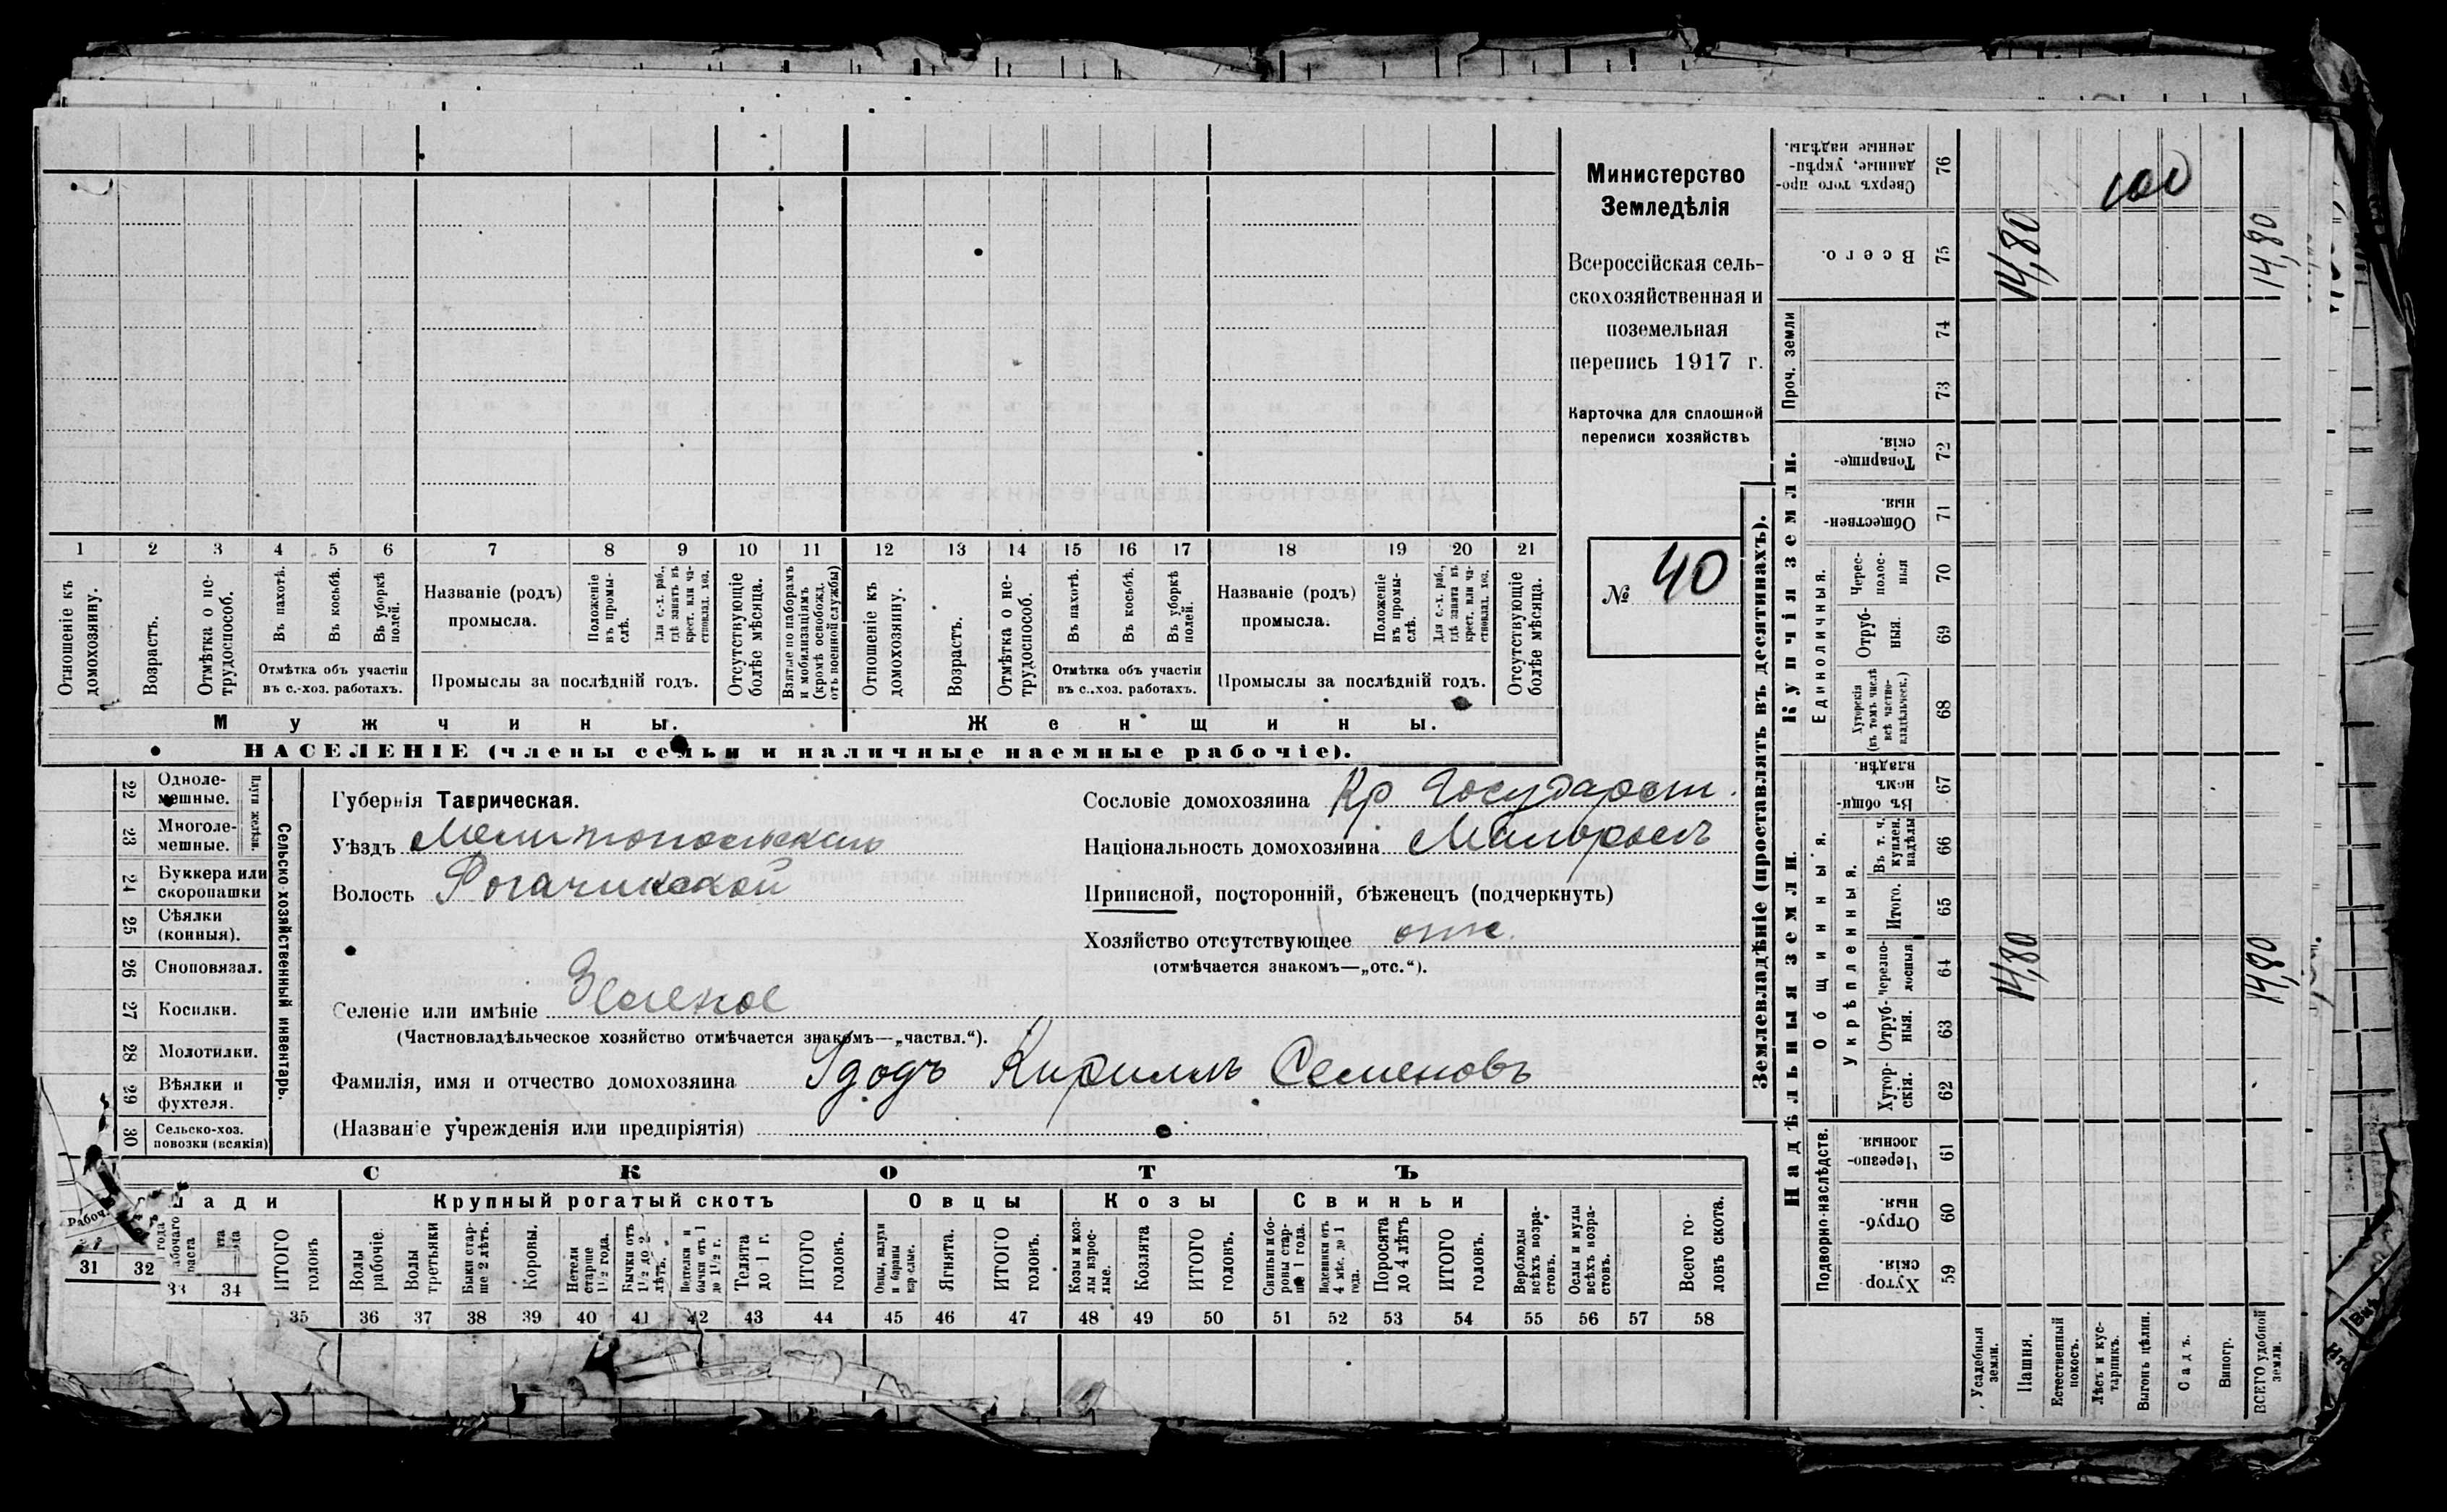 Министерство
Земледѣлія
Всероссійская сель-
скохозяйственная и
поземельная
перепись 1917 г.
Карточка для сплошной
переписи хозяйствъ
№ 40
1 2 3 4 5 6 7 8 9 10 11 12 13 14 15 16 17 18 19 20 21
Отношеніе къ домохозяину.
Возрастъ.
Отмѣтка о не-трудоспособ.
Въ пахотѣ.
Въ косьбѣ.
Въ уборкѣ полей.
Отмѣтка объ участіи
въ с.-хоз. работахъ.
Названіе (родъ)
промысла.
Положеніе въ промы-слѣ.
Для с.-х. раб., гдѣ занятъ въ крест. или ча-стновлад. хоз.
Промыслы за послѣдній годъ.
Отсутствующіе болѣе мѣсяца.
Взятые по наборамъ и мобилизаціямъ (кромѣ освобожд. отъ военной службы)
Отношеніе къ домохозяину.
Возрастъ.
Отмѣтка о не-трудоспособ.
Въ пахотѣ.
Въ косьбѣ.
Въ уборкѣ полей.
Отмѣтка объ участіи
въ с.-хоз. работахъ.
Названіе (родъ)
промысла.
Положеніе въ промы-слѣ.
Для с.-х. раб., гдѣ занята въ крест. или ча-стновлад. хоз.
Промыслы за послѣдній годъ.
Отсутствующіе болѣе мѣсяца.
Мужчины.
Женщины.
НАСЕЛЕНІЕ (члены семьи и наличные наемные рабочіе).
22 Одноле-мешные.
23 Многоле-мешные.
Плуги желѣзн.
24 Буккера или скоропашки
25 Сѣялки (конныя).
26 Сноповязал.
27 Косилки.
28 Молотилки.
29 Вѣялки и фухтеля.
30 Сельско-хоз. повозки (всякія)
Сельско-хозяйственный инвентарь.
Губернія Таврическая.
Уѣздъ Мелитопольскій
Волость Рогачикской
Селеніе или имѣніе Зеленое
(Частновладѣльческое хозяйство отмѣчается знакомъ—„частвл.“).
Фамилія, имя и отчество домохозяина Удодъ Кириллъ Семеновъ
(Названіе учрежденія или предпріятія)
Сословіе домохозяина Кр Государст.
Національность домохозяина Малоросъ
Приписной, посторонній, бѣженецъ (подчеркнуть)
Хозяйство отсутствующее отс.
(отмѣчается знакомъ—„отс.“).
СКОТЪ
Крупный рогатый скотъ
Овцы
Козы
Свиньи
Рабоч.
ИТОГО головъ
Волы рабочіе.
Волы третьяки
Быки стар-ше 2 лѣтъ.
Коровы.
Нетели старше 1½ года.
Бычки отъ 1½ до 2 лѣтъ.
Нетелки и бычки отъ 1 до 1½ г.
Телята до 1 г.
ИТОГО головъ.
Овцы, валухи и бараны взрослые.
Ягнята.
ИТОГО головъ.
Козы и коз-лы взрос-лые.
Козлята
ИТОГО головъ.
Свиньи и бо-ровы стар-ше 1 года.
Подсвинки отъ 4 мѣс. до 1 года.
Поросята до 4 лѣтъ
ИТОГО головъ.
Верблюды всѣхъ возра-стовъ.
Ослы и мулы всѣхъ возра-стовъ.
Всего го-ловъ скота.
31 32 33 34 35 36 37 38 39 40 41 42 43 44 45 46 47 48 49 50 51 52 53 54 55 56 57 58
Землевладѣніе (проставлять въ десятинахъ).
Надѣльныя земли.
Купчія земли.
Проч. земли
Подворно-наслѣдств.
Общинныя.
Укрѣпленныя.
Единоличныя.
Сверхъ того про-данные, укрѣп-ленные надѣлы. 76
Всего. 75
74
73
Товарище-скія. 72
Обществен-ныя. 71
Черес-полос-ныя 70
Отруб-ныя. 69
Хуторскія (въ томъ числѣ всѣ частно-владѣльческ.) 68
Въ общин-номъ владѣн. 67
Въ т. ч. куплен. надѣлы 66
Итого. 65
Черезпо-лосныя 64
Отруб-ныя. 63
Хутор-скія. 62
Черезпо-лосныя. 61
Отруб-ныя. 60
Хутор-скія. 59
Усадебныя земли.
Пашня.
Естественный покосъ.
Лѣсъ и кус-тарникъ.
Выгонъ цѣлин.
Садъ.
Виногр.
ВСЕГО удобной земли.
14,80
14,80
14,80
14,80